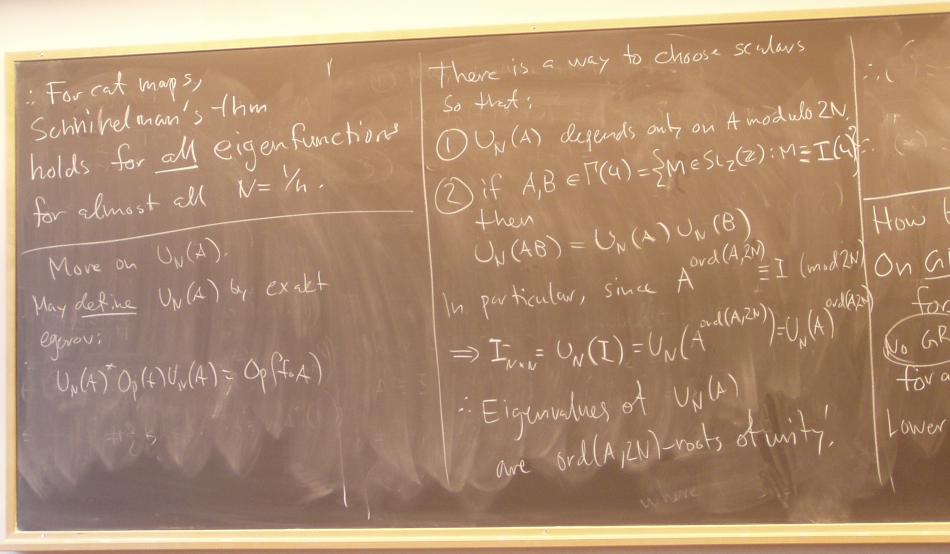 ∴ For cat maps,
Schnirelman's thm
holds for all eigenfunctions
for almost all N = 1/h.
Move on U_N(A).
May define U_N(A) by exakt
egorov:
U_N(A)* Op(f) U_N(A) = Op(f∘A)
There is a way to choose scalars
so that:
① U_N(A) depends only on A modulo 2N.
② if A,B ∈ Γ(4) = {M ∈ SL_2(Z): M ≡ I (4)}
then
U_N(AB) = U_N(A) U_N(B)
In particular, since A^ord(A,2N) ≡ I (mod 2N)
⇒ I_N×N = U_N(I) = U_N(A^ord(A,2N)) = U_N(A)^ord(A,2N)
∴ Eigenvalues of U_N(A)
are ord(A,2N)-roots of unity!
where
How
On GR
for
No GR
for a
Lower